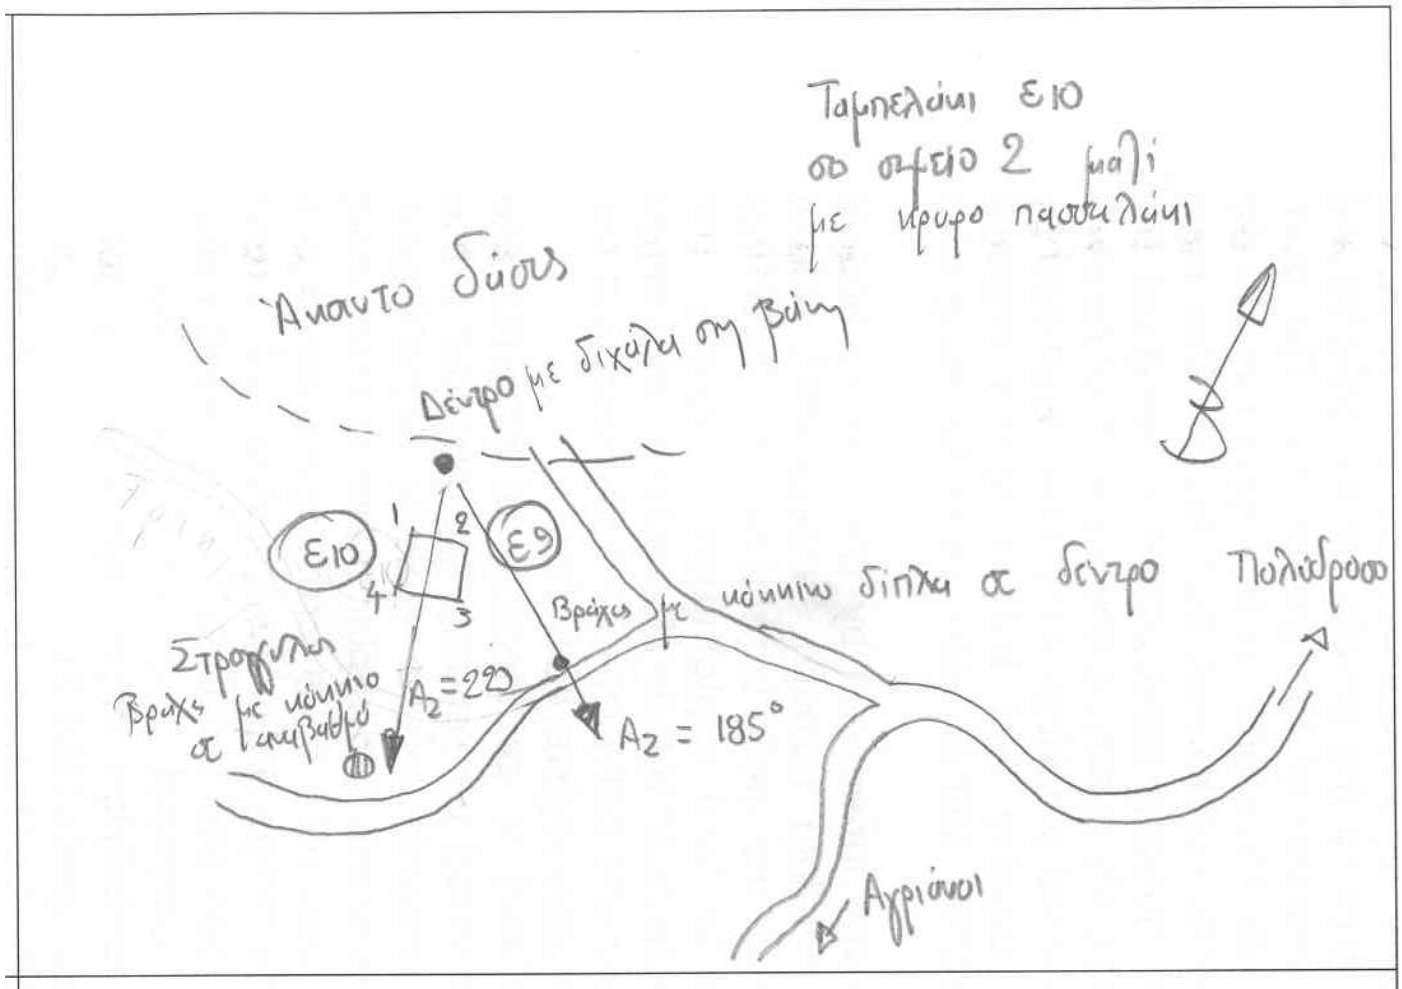 Ταμπελάκι ε10
στο σημείο 2 μαζί
με κρυφό πασσαλάκι
Άκαυτο δάσος
Δέντρο με διχάλα στη βάση
Β
ε10
1
2
3
4
ε9
Βράχος με κόκκινο δίπλα σε δέντρο
Πολύδροσο
Στρογγυλός
Βράχος με κόκκινο
σε αναβαθμό
Az = 220
Az = 185°
Αγριάνοι